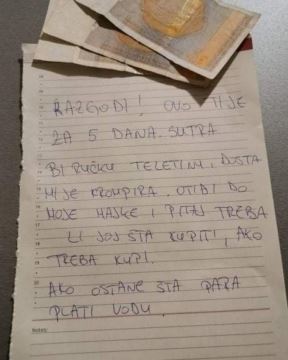 RAZGODI! OVO TI JE
ZA 5 DANA. SUTRA
TELETINU, DOSTA
MI JE KROMPIRA. OTIĐI DO
MOJE MAJKE I PITAJ TREBA
LI JOJ ŠTA KUPITI, AKO
TREBA KUPI.
AKO OSTANE ŠTA PARA
PLATI VODU.
Notes: